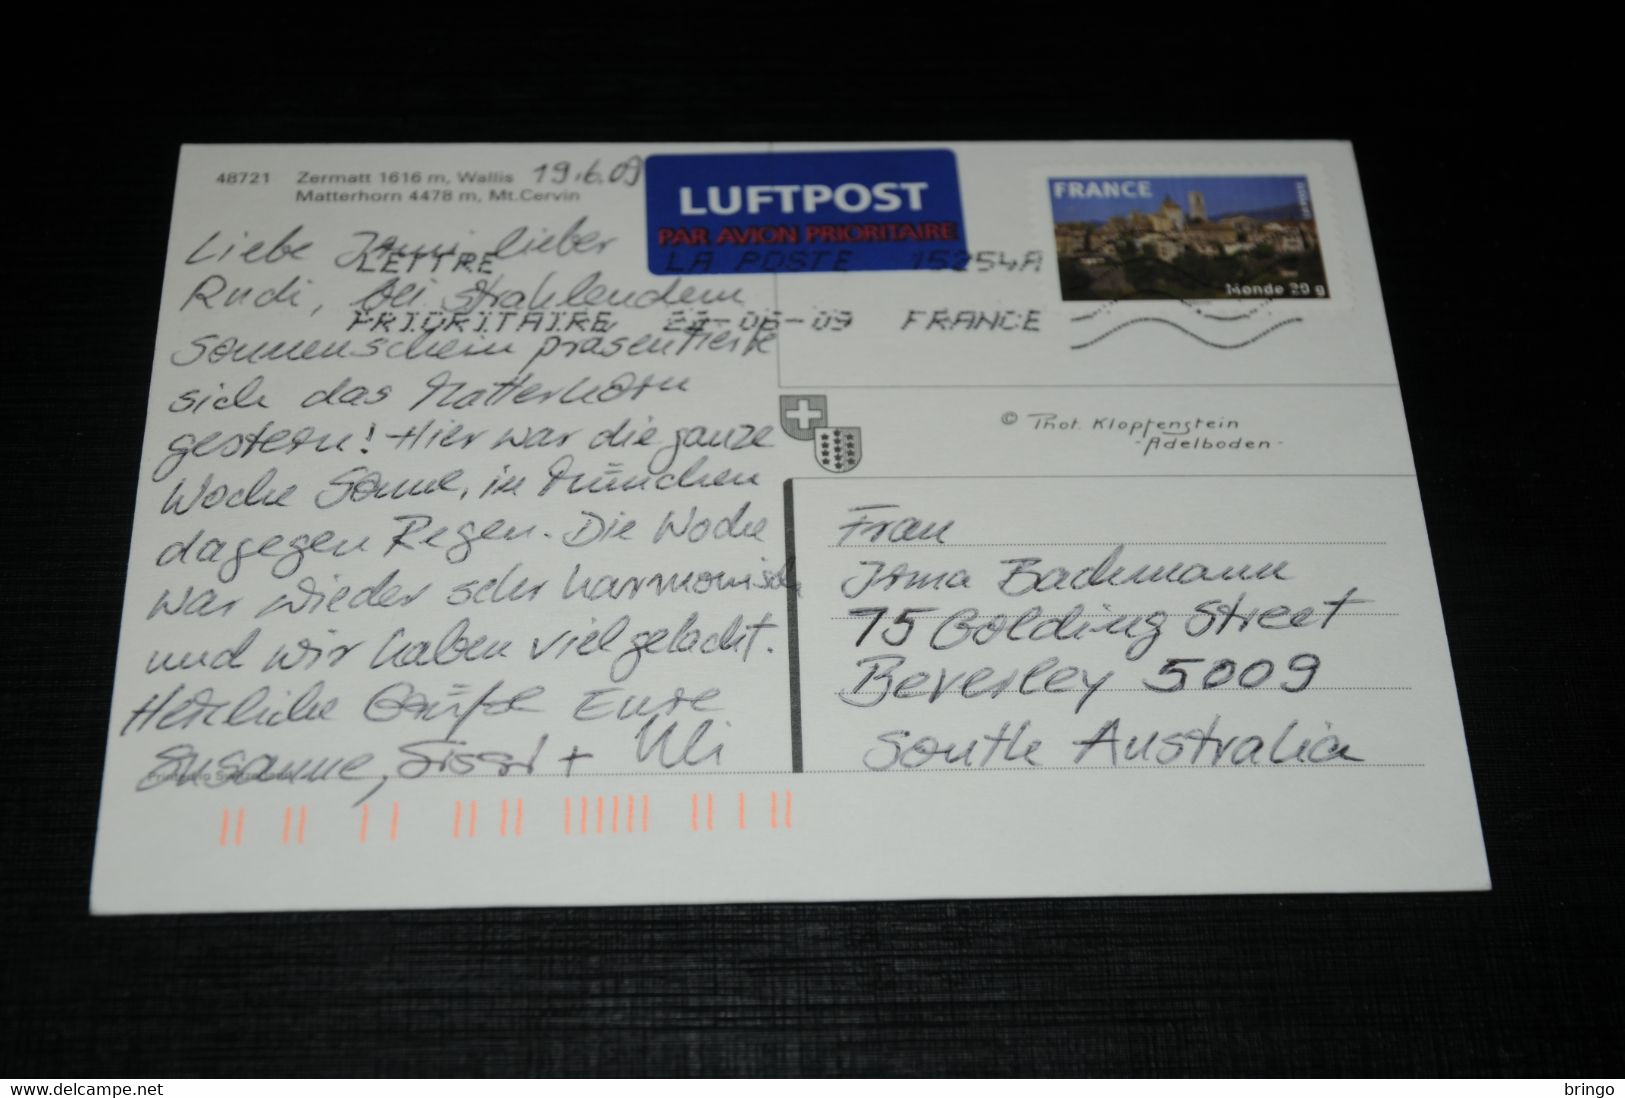 48721 Zermatt 1616 m, Wallis 19.6.09
Matterhorn 4478 m, Mt.Cervin
LUFTPOST
PAR AVION PRIORITAIRE
FRANCE
Monde 20 g
LETTRE LA POSTE 15254A
PRIORITAIRE 22-06-09 FRANCE
Liebe Irmi, lieber
Rudi, bei strahlendem
Sonnenschein präsentierte
sich das Matterhorn
gestern! Hier war die ganze
Woche Sonne, in München
dagegen Regen. Die Woche
war wieder sehr harmonisch
und wir haben viel gelacht.
Herzliche Grüße Eure
Susanne, Sissi + Uli
© Phot. Klopfenstein
- Adelboden -
Frau
Irma Bachmann
75 Golding Street
Beverley 5009
South Australia
bringo